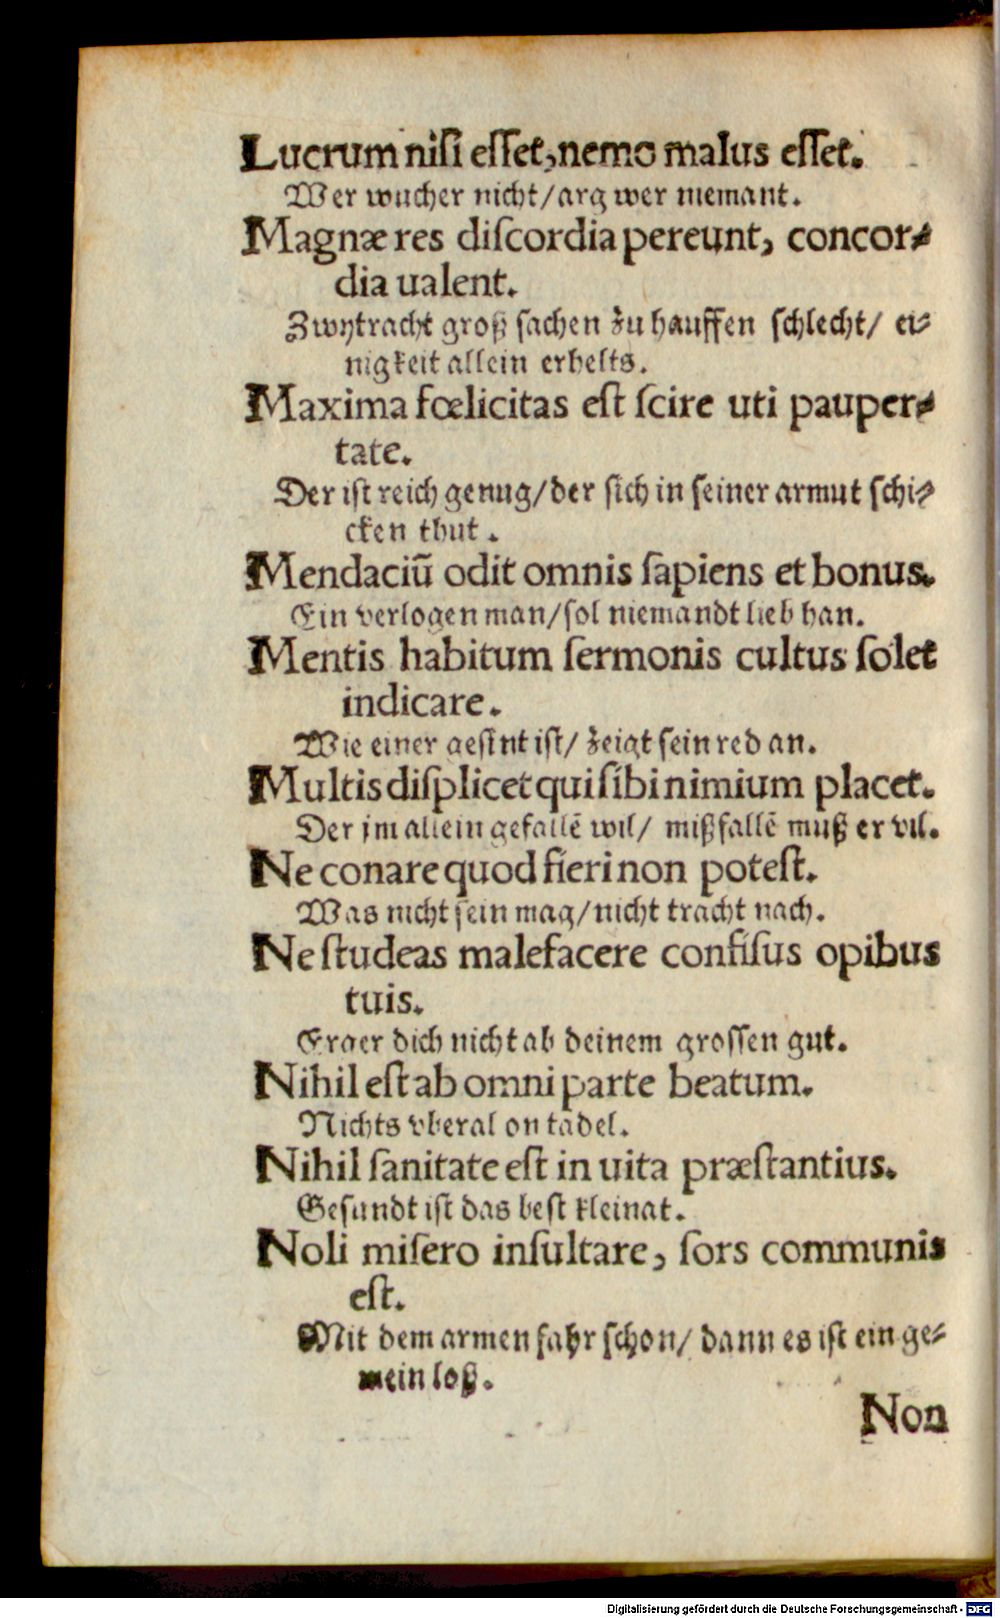 Lucrum niſi eſſet, nemo malus eſſet.
Wer wucher nicht/ arg wer niemant.
Magnæ res diſcordia pereunt, concor⸗
dia ualent.
Zwytracht groß ſachen zu hauffen ſchlecht/ ei⸗
nigkeit allein erhelts.
Maxima fœlicitas eſt ſcire uti pauper⸗
tate.
Der iſt reich genug/ der ſich in ſeiner armut ſchi⸗
cken thut.
Mendaciū odit omnis ſapiens et bonus.
Ein verlogen man/ ſol niemandt lieb han.
Mentis habitum ſermonis cultus ſolet
indicare.
Wie einer geſint iſt/ zeigt ſein red an.
Multis diſplicet qui ſibi nimium placet.
Der jm allein gefallē wil/ mißfallē muß er vil.
Ne conare quod fieri non poteſt.
Was nicht ſein mag/ nicht tracht nach.
Ne ſtudeas malefacere confiſus opibus
tuis.
Erger dich nicht ab deinem groſſen gut.
Nihil eſt ab omni parte beatum.
Nichts vberal on tadel.
Nihil ſanitate eſt in uita præſtantius.
Geſundt iſt das beſt kleinat.
Noli miſero inſultare, ſors communis
eſt.
Mit dem armen fahr ſchon/ dann es iſt ein ge⸗
mein loß.
Non
Digitalisierung gefördert durch die Deutsche Forschungsgemeinschaft - DFG